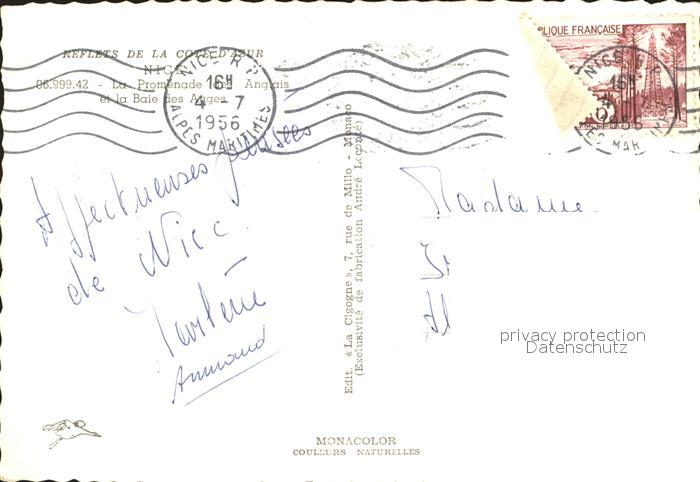 REFLETS DE LA COTE D'AZUR
NICE
06.999.42 - La Promenade des Anglais
et la Baie des Anges
NICE R.P.
16H
4 - 7
1956
ALPES MARITIMES
RÉPUBLIQUE FRANÇAISE
NICE R.P.
16H
1956
Affectueuses pensées
de Nice.
Marlène
Armand
Madame
Edit. « La Cigogne », 7, rue de Millo - Monaco
(Exclusivité de fabrication André Leconte)
privacy protection
Datenschutz
MONACOLOR
COULEURS NATURELLES